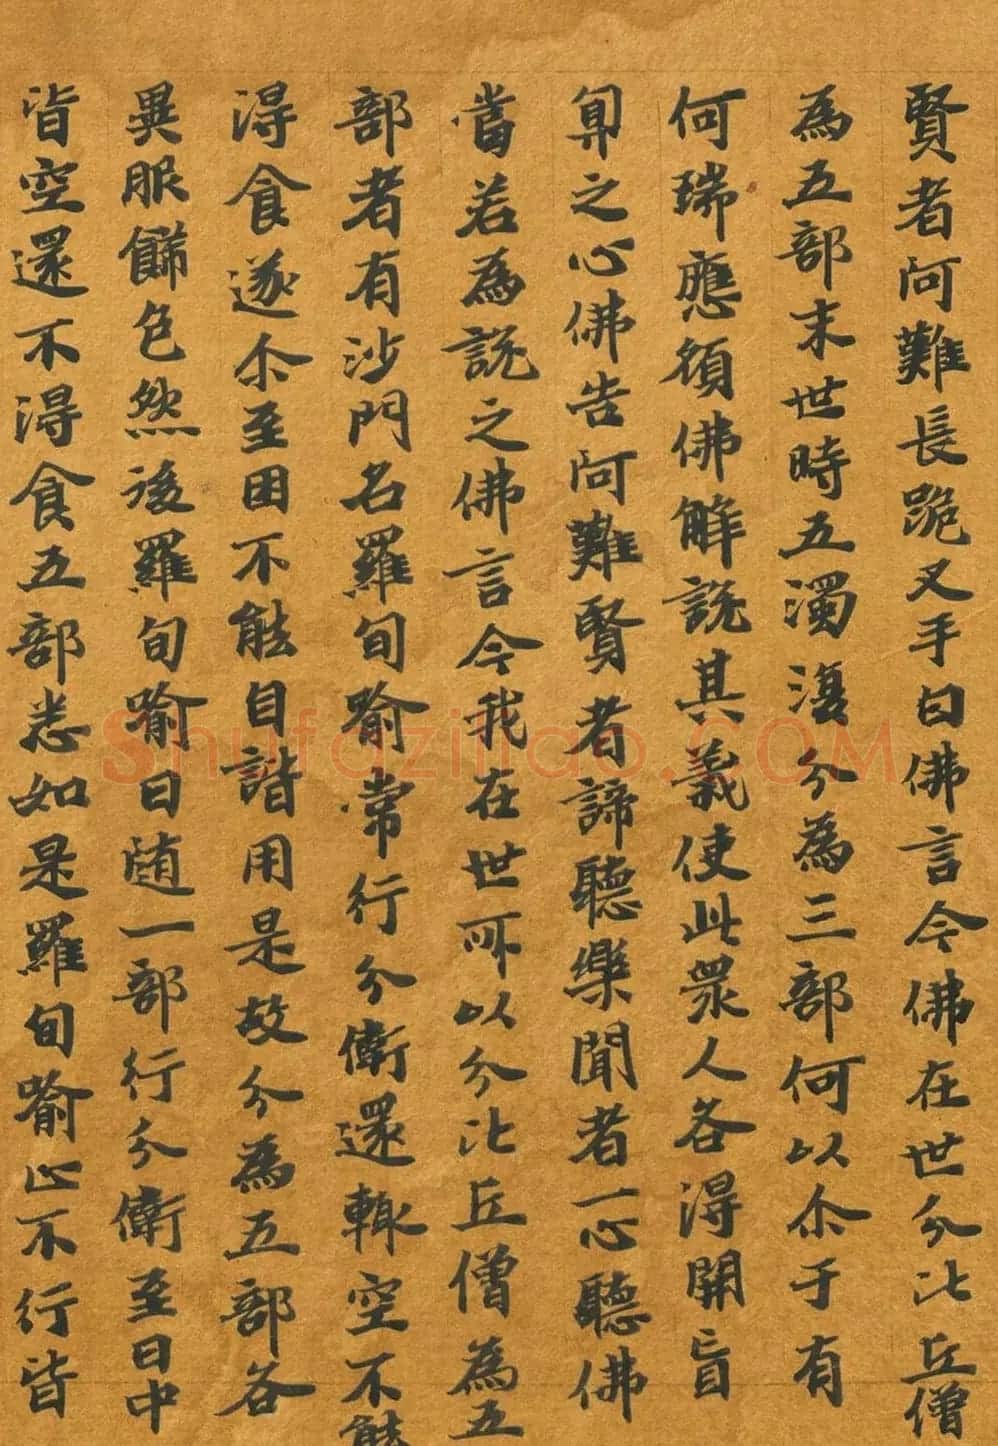 賢者阿難長跪叉手白佛言今佛在世分比丘僧
為五部末世時五濁復分為三部何以尒于有
何瑞應願佛解說其義使此眾人各得開盲
冥之心佛告阿難賢者諦聽樂聞者一心聽佛
當若為說之佛言今我在世所以分比丘僧為五
部者有沙門名羅旬喻常行分衛還輙空不能
得食遂尒至困不能自諧用是故分為五部各
異服飾色然後羅旬喻日随一部行分衛至日中
皆空還不得食五部悉如是羅旬喻心不行皆
Shufaziliao.COM